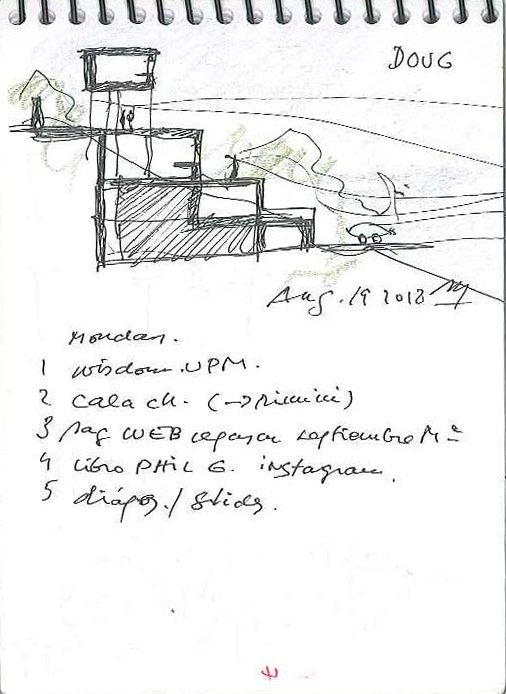 DOUG
Aug. 19 2018
Monday.
1 wisdom. UPM.
2 Cala ch. (→ Rimini)
3 pag WEB repasar septiembre Mª
4 libro PHIL G. instagram.
5 diápos. / Slides.